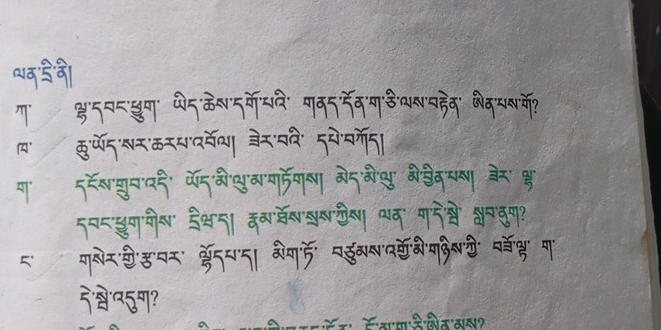 ལན་དྲི་ནི།
ཀ་ ལྷ་དབང་ཕྱུག་ ཡིད་ཆེས་དགོ་པའི་ གནད་དོན་ག་ཅི་ལས་བརྟེན་ ཨིན་པས་གོ?
ཁ་ ཆུ་ཡོད་སར་ཆརཔ་འབོལ། ཟེར་བའི་ དཔེ་བཀོད།
ག་ དངོས་གྲུབ་འདི་ ཡོད་མི་ལུ་མ་གཏོགས། མེད་མི་ལུ་ མི་བྱིན་པས། ཟེར་ ལྷ་
དབང་ཕྱུག་གིས་ དྲིཝ་ད། རྣམ་ཐོས་སྲས་ཀྱིས། ལན་ ག་དེ་སྦེ་ སླབ་ནུག?
ང་ གསེར་གྱི་རྩ་བར་ ལྷོདཔ་ད། མིག་ཏོ་ བཙུམས་འགྱོ་མི་གཉིས་ཀྱི་ བཟོ་ལྟ་ ག་
དེ་སྦེ་འདུག?